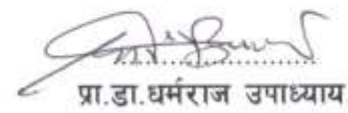 प्रा.डा.धर्मराज उपाध्याय